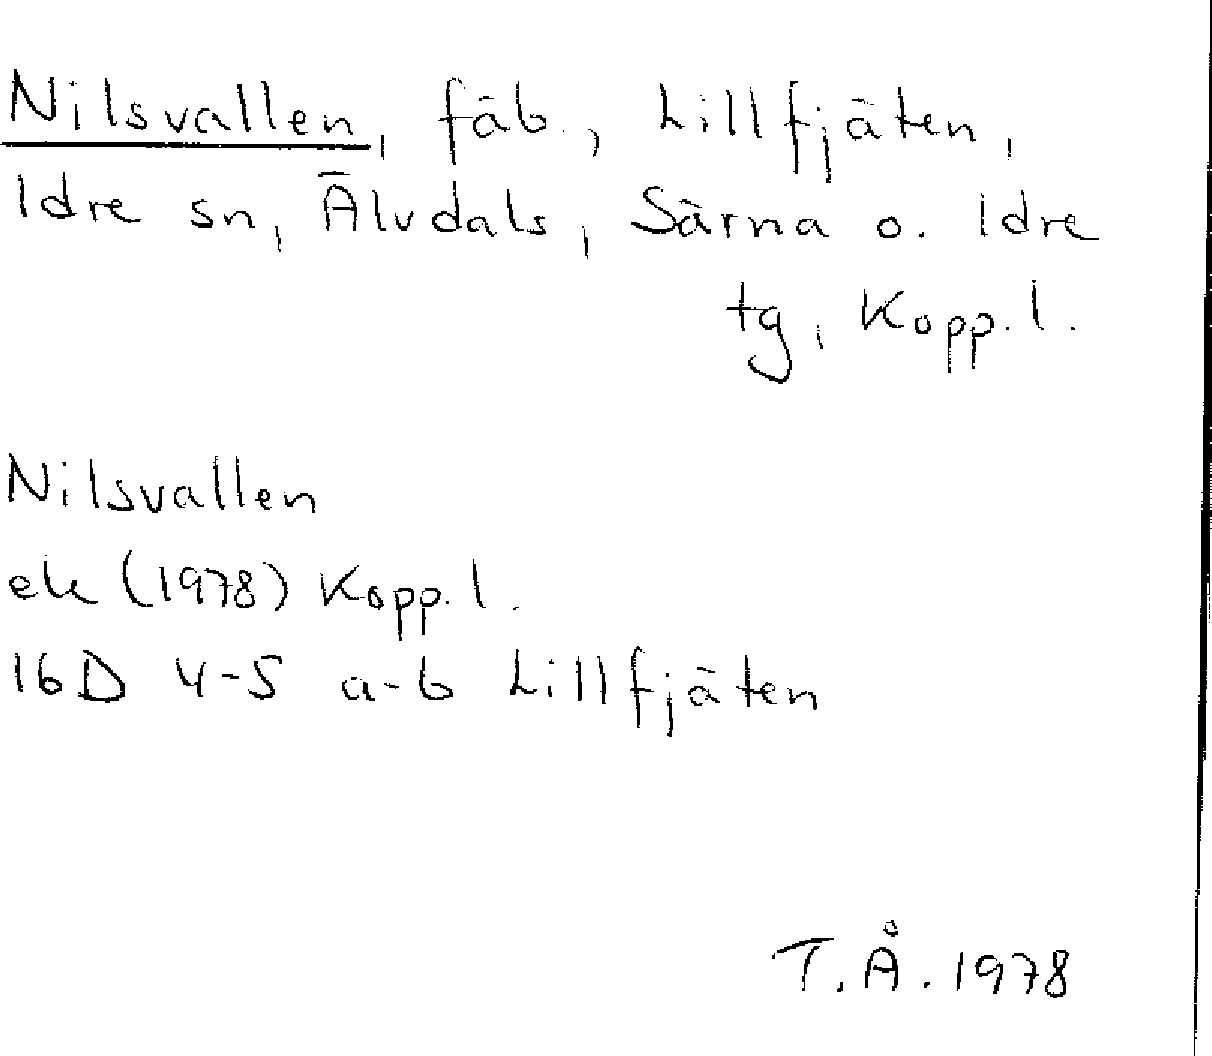 Nilsvallen, fäb., Lillfjäten,
Idre sn, Älvdals, Särna o. Idre
tg, Kopp. l.
Nilsvallen
ek (1978) Kopp. l.
16D 4-5 a-b Lillfjäten
T.Å. 1978